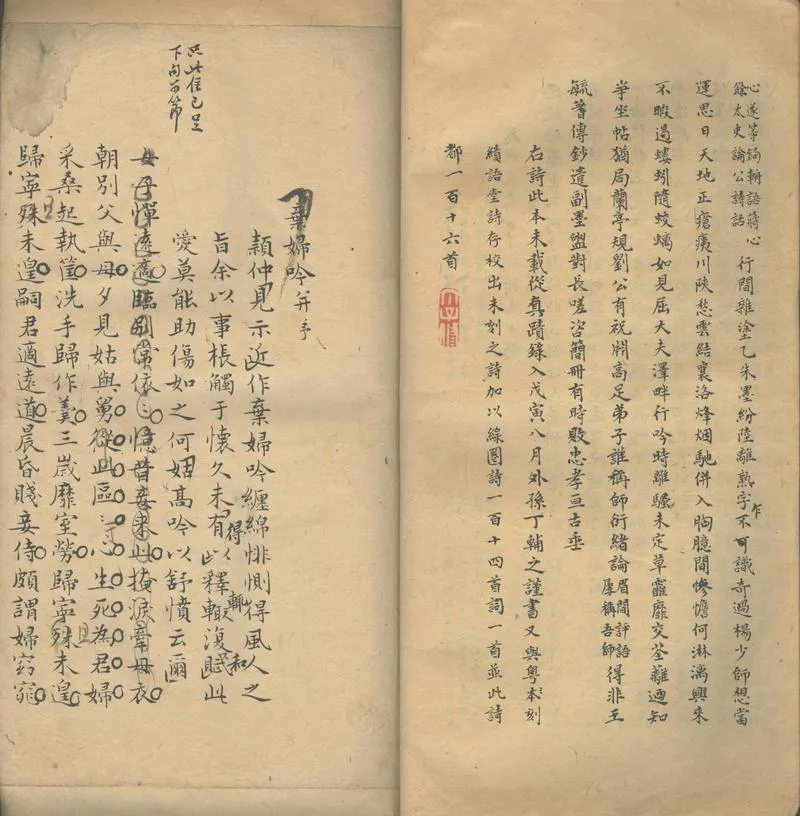 心遂等絢辦語蔣心行間雜塗乙朱墨紛陸離熟字乍不可識奇過楊少師想當
餘太史論公詩話
運思日天地正瘡痍川陝愁雲結襄洛烽烟馳併入胸臆間慘憺何淋漓興來
不暇過螻蚓隨蛟螭如見屈大夫澤畔行吟時離騷未定草靃靡交荃蘺迺知
爭坐帖猶局蘭亭規劉公有祝嗣高足弟子誰稱師衍緒論眉間評語屢稱吾師得非王
毓蓍傳鈔遺副墨盥對長嗟咨簡冊有時敗忠孝亘古垂
右詩此本未載從真蹟錄入戊寅八月外孫丁輔之謹書又與粵本刻
績語堂詩存校出未刻之詩加以綠圈詩一百十四首詞一首並此詩
都一百十六首
只此住已足
下句可節
棄婦吟并序
穎仲見示近作棄婦吟纏綿悱惻得風人之
旨余以事棖觸于懷久未有得以釋輒復賦此
愛莫能助傷如之何姑高吟以舒憤云爾
女子憚遠適臨別常依依憶昔妾來此掩淚牽母衣
朝別父與母夕見姑與舅從此區區心生死為君婦
采桑起執筐洗手歸作羹三歲靡室勞歸寧殊未遑
歸寧殊未遑嗣君適遠道晨昏賤妾侍頗謂婦窈窕